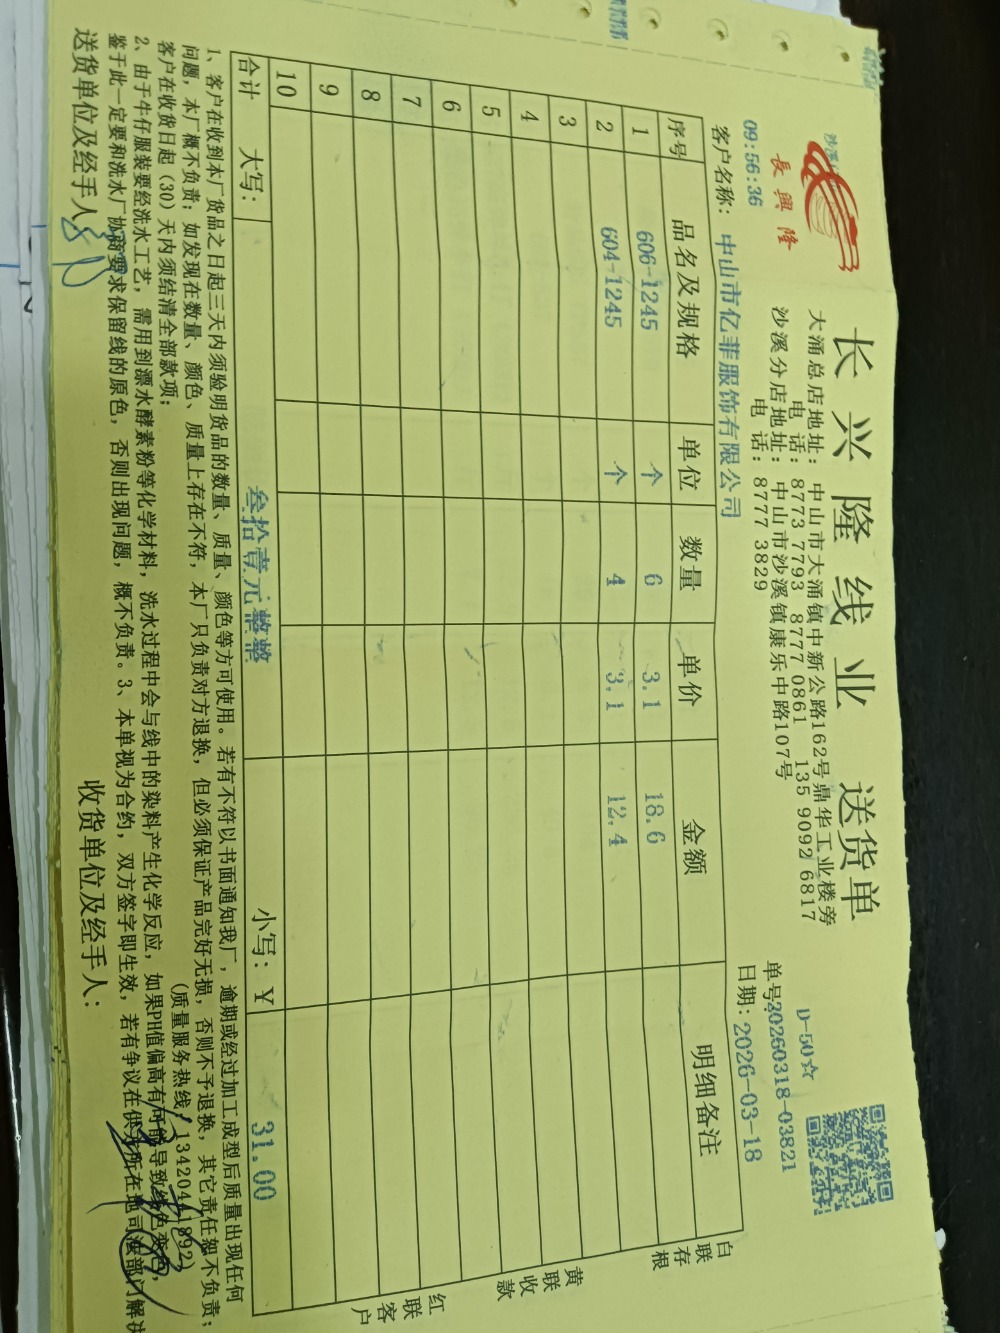 長興隆
长兴隆线业 送货单
大涌总店地址: 中山市大涌镇中新公路162号鼎华工业楼旁
电 话: 8773 7793 8777 0861 135 9092 6817
沙溪分店地址: 中山市沙溪镇康乐中路107号
电 话: 8777 3829
D-50☆
单号20260318-03821
09:56:36
日期: 2026-03-18
客户名称: 中山市亿菲服饰有限公司
序号 品名及规格 单位 数量 单价 金额 明细备注
1 606-1245 个 6 3.1 18.6
2 604-1245 个 4 3.1 12.4
3
4
5
6
7
8
9
10
合计 大写: 叁拾壹元整整 小写: ¥ 31.00
白联存根
黄联收款
红联客户
1、客户在收到本厂货品之日起三天内须验明货品的数量、质量、颜色等方可使用。若有不符以书面通知我厂, 逾期或经过加工成型后质量出现任何
问题, 本厂概不负责; 如发现在数量、颜色、质量上存在不符, 本厂只负责对方退换, 但必须保证产品完好无损, 否则不予退换, 其它责任恕不负责;
客户在收货日起 (30) 天内须结清全部款项; (质量服务热线: 13420441892)
2、由于牛仔服装要经洗水工艺, 需用到漂水酵素粉等化学材料, 洗水过程中会与线中的染料产生化学反应, 如果PH值偏高有可能导致线色变色,
鉴于此一定要和洗水厂协商要求保留线的原色, 否则出现问题, 概不负责。3、本单视为合约, 双方签字即生效, 若有争议在供方所在地司法部门解决
送货单位及经手人:
收货单位及经手人: